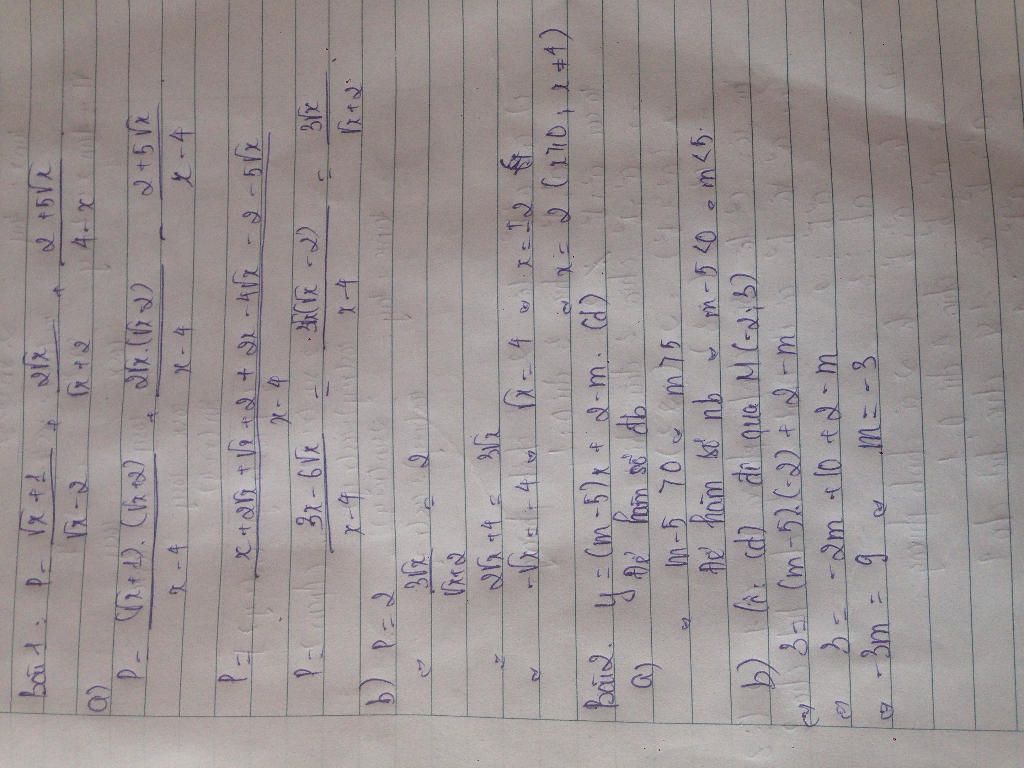 Bài 1: P = √x + 1 / √x - 2 + 2√x / √x + 2 + 2 + 5√x / 4 - x
a)
P = (√x + 1).(√x + 2) / x - 4 + 2√x.(√x - 2) / x - 4 - 2 + 5√x / x - 4
P = x + 2√x + √x + 2 + 2x - 4√x - 2 - 5√x / x - 4
P = 3x - 6√x / x - 4 = 3√x(√x - 2) / x - 4 = 3√x / √x + 2
b) P = 2
⇔ 3√x / √x + 2 = 2
⇔ 2√x + 4 = 3√x
⇔ -√x = -4 ⇔ √x = 4 ⇔ x = ± 2
⇔ x = 2 (x ≥ 0, x ≠ 4)
Bài 2. y = (m - 5)x + 2 - m. (d)
a) Để hàm số đb
⇔ m - 5 > 0 ⇔ m > 5
Để hàm số nb ⇔ m - 5 < 0 ⇔ m < 5.
b) (d) đi qua M(-2; 3)
⇔ 3 = (m - 5).(-2) + 2 - m
⇔ 3 = -2m + 10 + 2 - m
⇔ -3m = 9 ⇔ m = -3